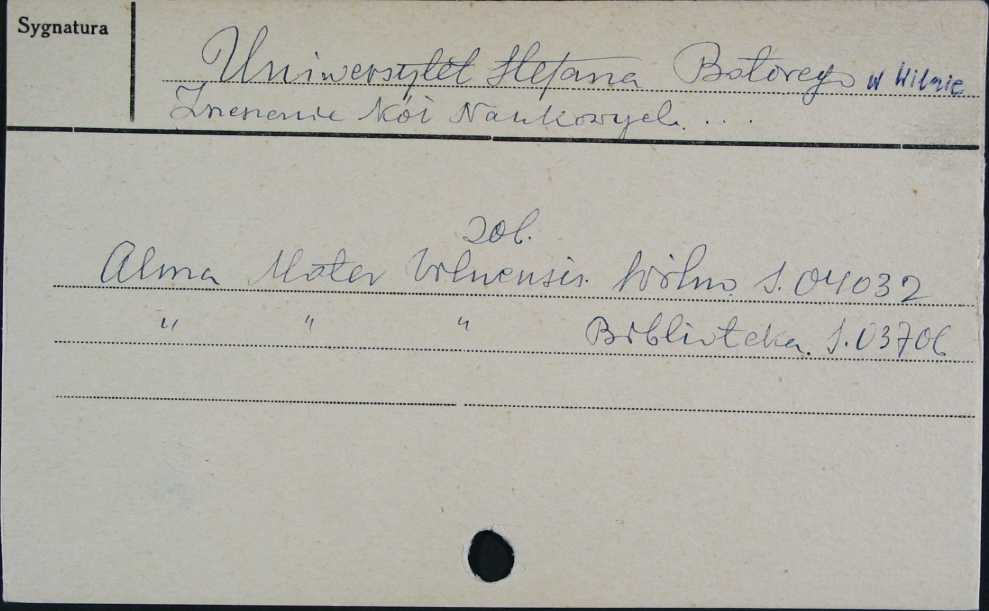 Sygnatura
Uniwersytet Stefana Batorego w Wilnie
Zrzeszenie Kół Naukowych ...
zob.
Alma Mater Vilnensis. Wilno S.04032
" " " Biblioteka. S.03706